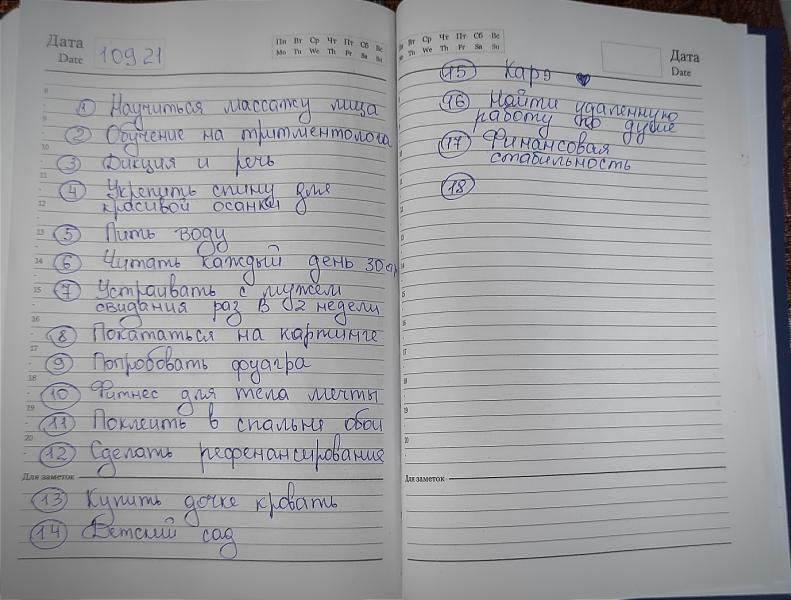 Дата
Date
10 9 21
Пн Вт Ср Чт Пт Сб Вс
Mo Tu We Th Fr Sa Su
8
1 Научиться массажу лица
9
2 Обучение на тритментолога
10
3 Дикция и речь
11
4 Укрепить спину для
12
красивой осанки
13
5 Пить воду
14
6 Читать каждый день 30
15
7 Устраивать с мужем
свидания раз в 2 недели
16
8 Покататься на картинге
17
9 Попробовать фуагра
18
10 Фитнес для тела мечты
19
11 Поклеить в спальне обои
20
12 Сделать рефенансирование
Для заметок
13 Купить дочке кровать
14 Детский сад
Пн Вт Ср Чт Пт Сб Вс
Mo Tu We Th Fr Sa Su
Дата
Date
15 Карэ
16 Найти удаленную
работу по душе
17 Финансовая
стабильность
18
14
15
16
17
18
19
20
Для заметок